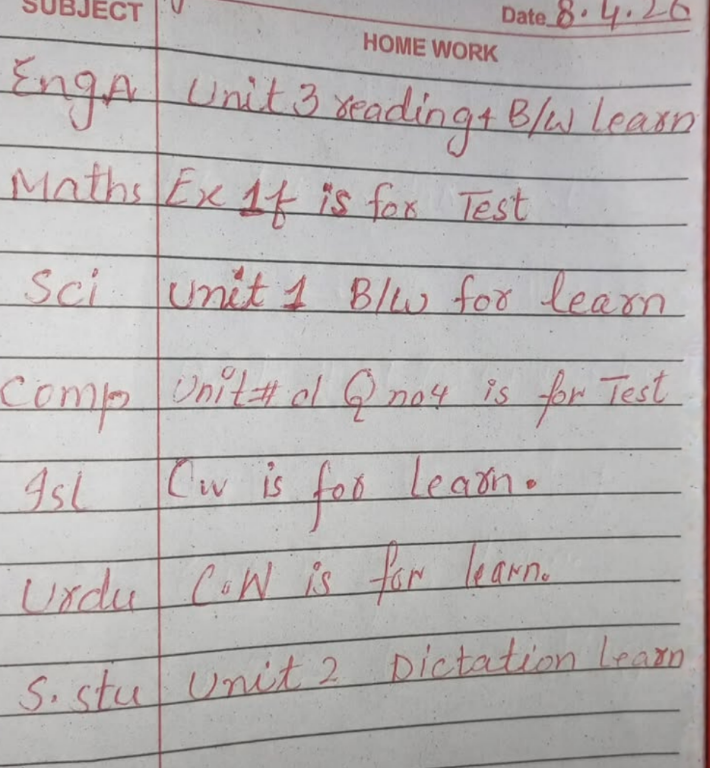 SUBJECT Date 8.4.26
HOME WORK
Eng A Unit 3 reading + B/W learn
Maths Ex 1f is for Test
Sci Unit 1 B/W for learn
Comp Unit # 01 Q no 4 is for Test
Isl Cw is for learn.
Urdu C.W is for learn.
S.stu Unit 2 Dictation learn